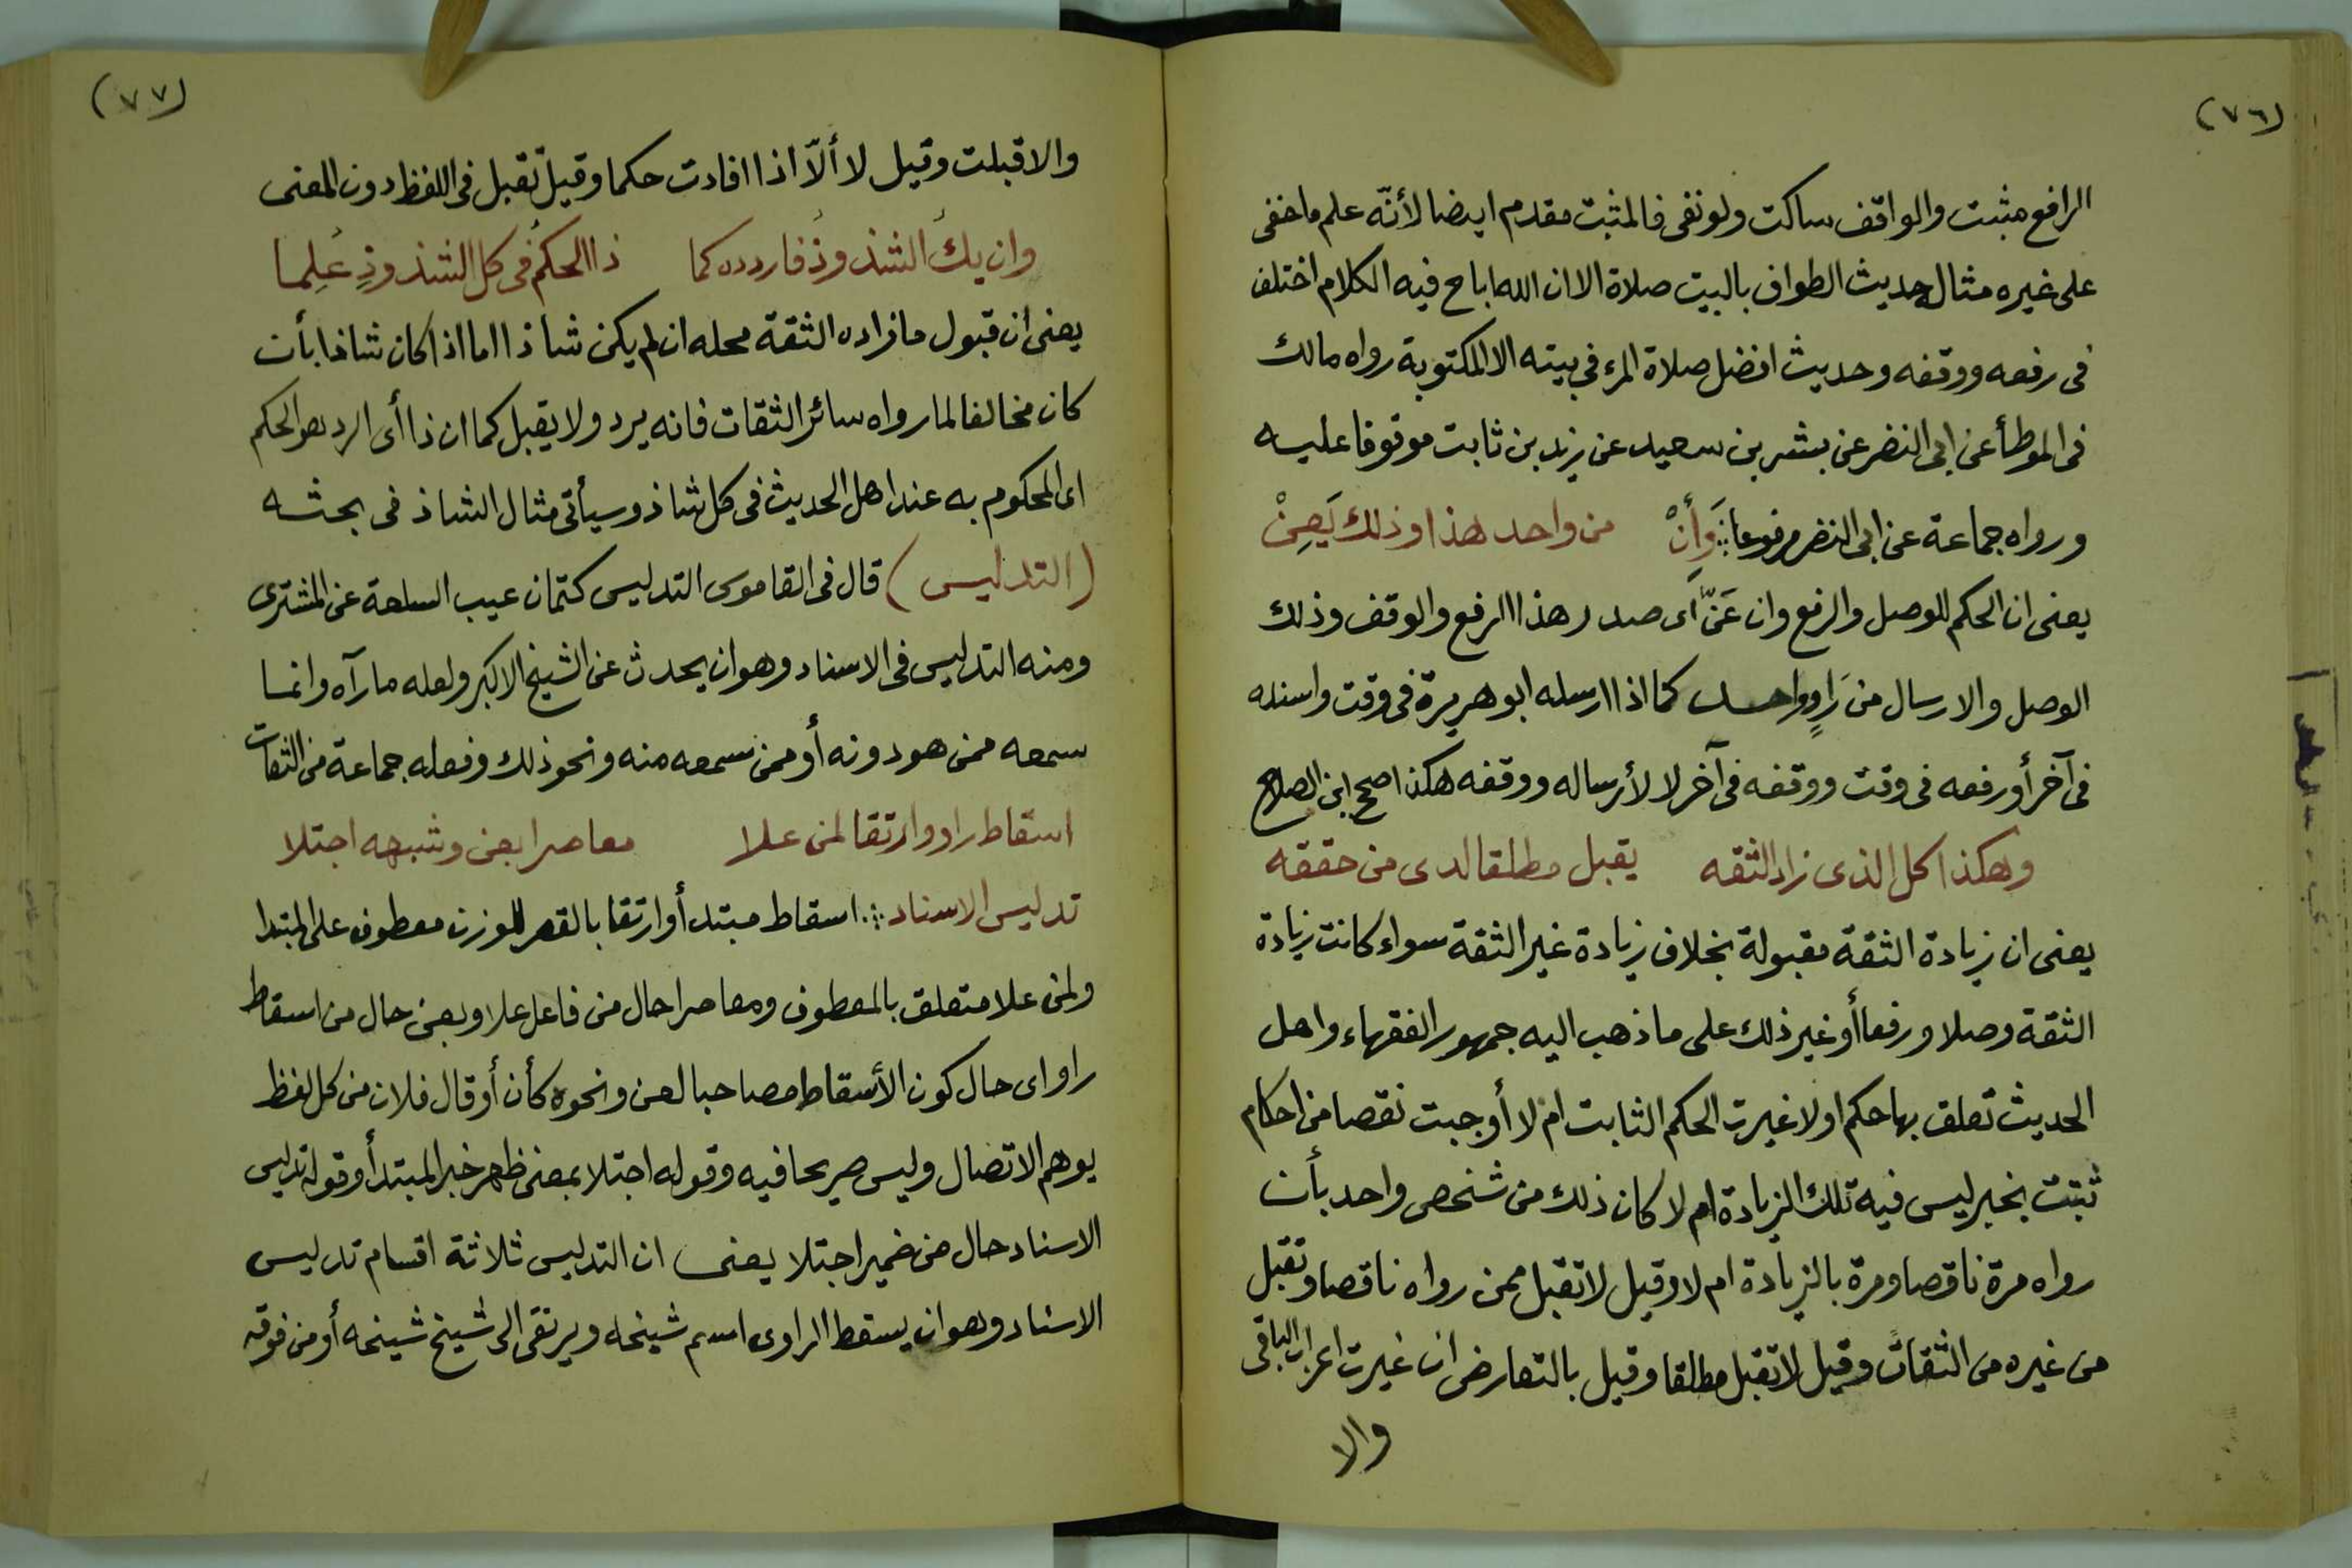 (٧٦)
الرافع مثبت والواقف ساكت ولو نفى فالمثبت مقدم ايضا لأنّه علم ما خفى
على غيره مثال حديث الطواف بالبيت صلاة الا ان الله اباح فيه الكلام اختلف
فى رفعه ووقفه وحديث افضل صلاة المرء فى بيته الا المكتوبة رواه مالك
فى الموطأ عن ابى النضر عن بشر بن سعيد عن زيد بن ثابت موقوفا عليه
ورواه جماعة عن ابى النضر مرفوعا ؞ وَأَنْ من واحد هذا وذلك يَعِنْ
يعنى ان الحكم للوصل والرفع وان عَنّ اى صدر هذا الرفع والوقف وذلك
الوصل والارسال من رَاوٍ واحد كما اذا ارسله ابو هريرة فى وقت واسنده
فى آخر أو رفعه فى وقت ووقفه فى آخر لا لأرساله ووقفه هكذا صحح ابن الصلاح
وهكذا كل الذى زاد الثقه يقبل مطلقا لدى من حققه
يعنى ان زيادة الثقة مقبولة بخلاف زيادة غير الثقة سواء كانت زيادة
الثقة وصلا ورفعا أو غير ذلك على ما ذهب اليه جمهور الفقهاء واهل
الحديث تعلق بها حكم اولا غيرت الحكم الثابت ام لا أوجبت نقصا من احكام
ثبتت بخبر ليس فيه تلك الزيادة ام لا كان ذلك من شخص واحد بأن
رواه مرة ناقصا ومرة بالزيادة ام لا وقيل لا تقبل ممن رواه ناقصا وتقبل
من غيره من الثقات وقيل لا تقبل مطلقا وقيل بالتعارض ان غيرت اعراب الباقى
والا
(٧٧)
والا قبلت وقيل لا ألاّ اذا افادت حكما وقيل تقبل فى اللفظ دون المعنى
وان يكُ الشذوذُ فاردده كما ذا الحكمُ فى كل الشذوذِ عُلِما
يعنى أن قبول ما زاده الثقة محله ان لم يكن شاذا اما اذا كان شاذا بأن
كان مخالفا لما رواه سائر الثقات فانه يرد ولا يقبل كما ان ذا أى الرد هو الحكم
اى المحكوم به عند اهل الحديث فى كل شاذ وسيأتى مثال الشاذ فى بحثه
(التدليس) قال فى القاموس التدليس كتمان عيب السلعة عن المشترى
ومنه التدليس فى الاسناد وهو ان يحدث عن الشيخ الاكبر ولعله ما رآه وانما
سمعه ممن هو دونه أو ممن سمعه منه ونحو ذلك وفعله جماعة من الثقات
اسقاط راو وارتقا لمن علا معاصرا بعن وشبهه اجتلا
تدليس الاسناد ؞ اسقاط مبتدأ وارتقا بالقصر للوزن معطوف على المبتدا
ولمن علا متعلق بالمعطوف ومعاصرا حال من فاعل علا وبعن حال من اسقاط
راو اى حال كون الأسقاط مصاحبا لعن ونحوه كأن أو قال فلان من كل لفظ
يوهم الاتصال وليس صريحا فيه وقوله اجتلا بمعنى ظهر خبر المبتدأ وقوله تدليس
الاسناد حال من ضمير اجتلا يعنى ان التدليس ثلاثة اقسام تدليس
الاسناد وهو ان يسقط الراوى اسم شيخه ويرتقى الى شيخ شيخه أو من فوقه